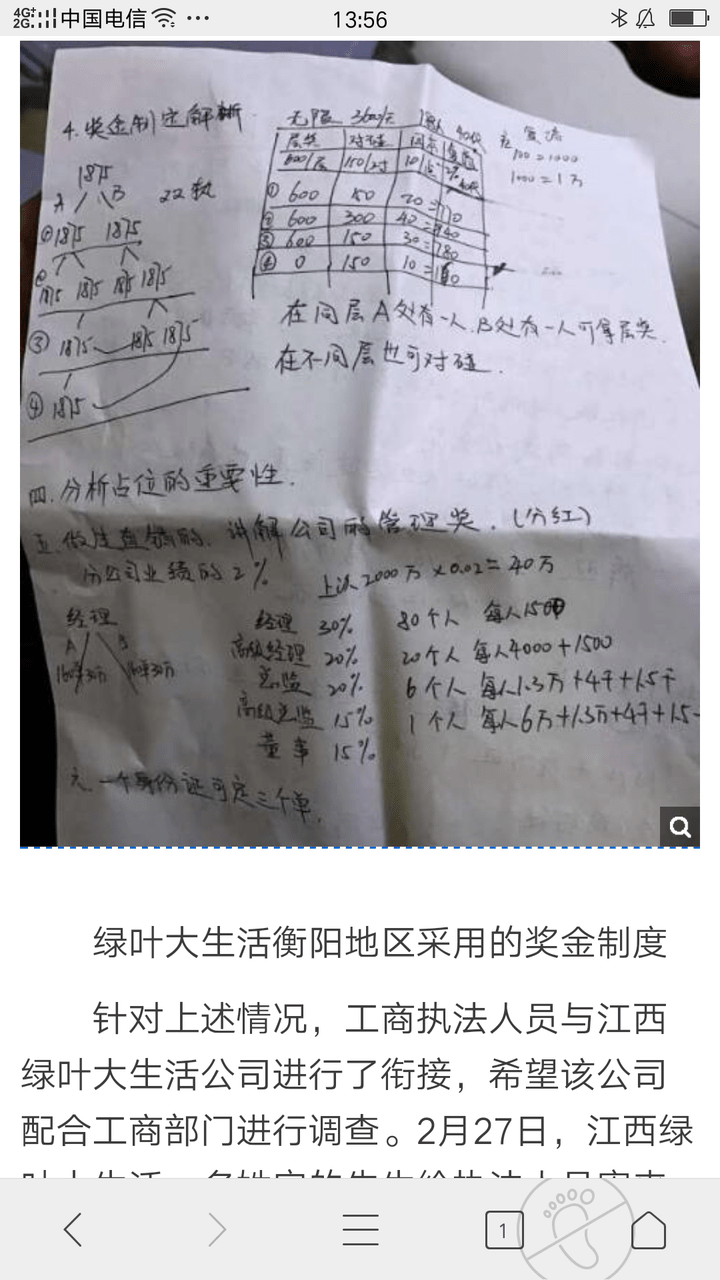 4G+ 2G 中国电信 13:56
4.奖金制定解断
1875
A B 22孰
① 1875 1875
② 1875 1875 1875 1875
③ 1875 1875 1875
④ 1875
无限 3600/天
层奖 对碰
600/层 150/对
① 600 20=770
② 600 300 40=940
③ 600 150 30=780
④ 0 150
100=1000
1000=1万
在同层A处有一人.B处有一人可拿层奖.
在不同层也可对碰.
四.分析占位的重要性.
讲解公司的管理奖.(分红)
分公司业绩的2%
2000万×0.02=40万
经理
A B
经理 30% 80个人 每人1500
高级经理 20% 20个人 每人4000+1500
总监 20% 6个人 每人1.3万+4千+1.5千
高级总监 15% 1个人 每人6万+1.3万+4千+1.5
董事 15%
六 一个身份证可定三个单.
绿叶大生活衡阳地区采用的奖金制度
针对上述情况，工商执法人员与江西
绿叶大生活公司进行了衔接，希望该公司
配合工商部门进行调查。2月27日，江西绿
1